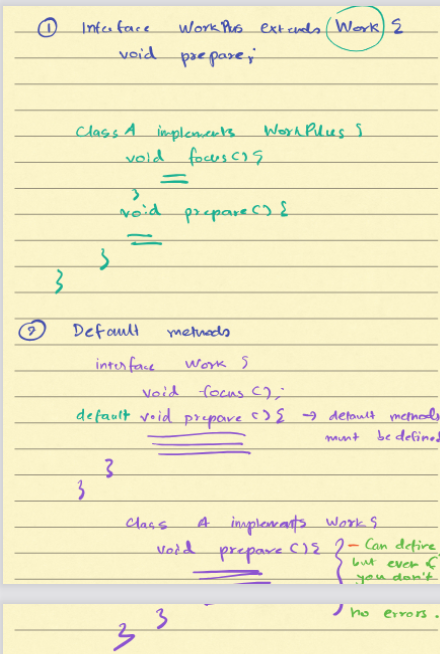 ① Interface WorkPlus extends Work {
void prepare;
Class A implements WorkPlus {
void focus() {
}
void prepare() {
}
}
② Default methods
interface Work {
void focus();
default void prepare() { → default methods
must be defined
}
}
Class A implements Work {
void prepare() { } - Can define
but even if
you don't
no errors.
}
}